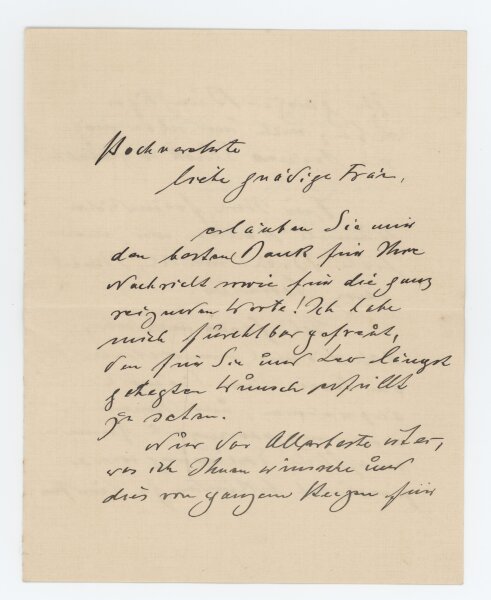 Hochverehrte
liebe gnädige Frau,
erlauben Sie mir
den besten Dank für Ihre
Nachricht sowie für die ganz
reizenden Worte! Ich habe
mich furchtbar gefreut,
den für Sie und Leo längst
gehegten Wunsch erfüllt
zu sehen.
Nur das Allerbeste ist es,
was ich Ihnen wünsche und
dies von ganzem Herzen für